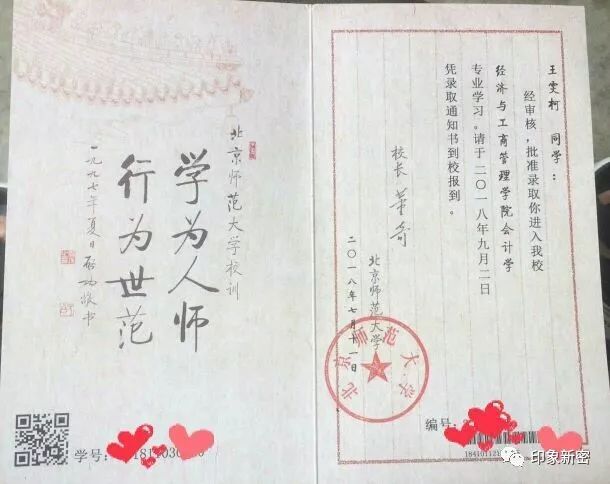 北京师范大学校训
学为人师
行为世范
一九九七年夏日 启功敬书
学号：
王雯柯 同学：
经审核，批准录取你进入我校
经济与工商管理学院会计学
专业学习。请于二〇一八年九月二日
凭录取通知书到校报到。
校长 董奇
北京师范大学
二〇一八年七月十一日
北京师范大学
编号：
印象新密